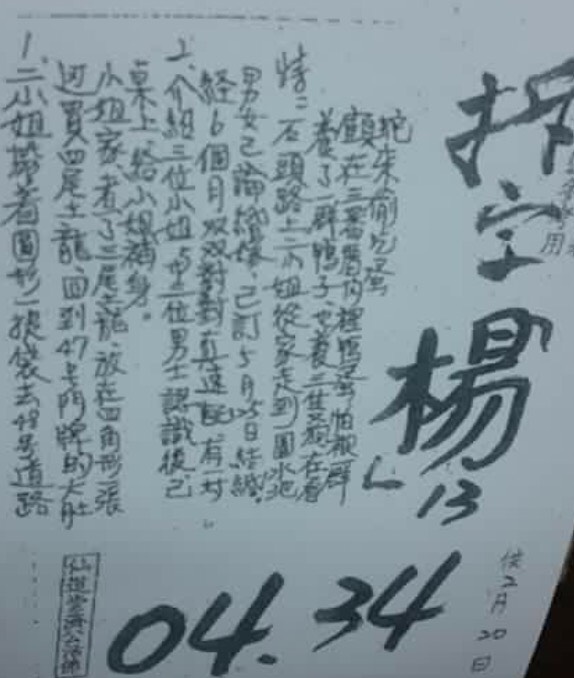 1、二小姐帶着圓形一提袋去48号道路
边買四尾土龍、回到47号門牌的大肚
小姐家、煮了三尾土龍、放在四角形一張
桌上、給小姐補身。
2、介紹三位小姐5中三位男士認識後、已
經6個月双双對對真速配、有一对
男女已論婚嫁、已訂5月25日結婚。
情:二石頭路上二小姐從家走到圓水池
養了一群鴨子、也養三隻狗在看
顧在三番層内裡鴨蛋怕被群
蛇來偷吃蛋
拆字
用
楊
13
04.34
供2月20日
仙道堂濟公活佛